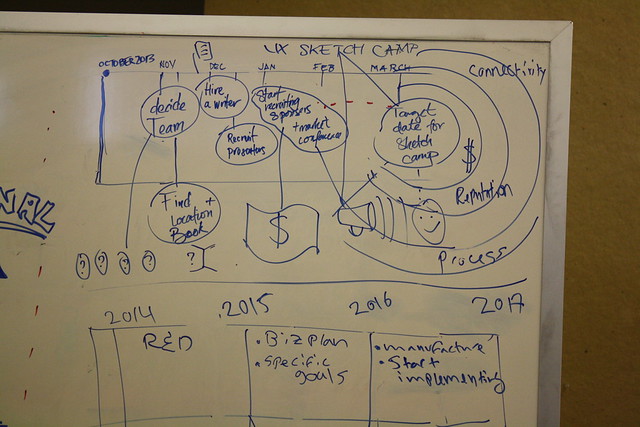 UX SKETCH CAMP
OCTOBER 2013
NOV
DEC
JAN
FEB
MARCH
Connectivity
decide
Team
Hire
a writer
Start
recruiting
sponsors
+ market
conference
Target
date for
Sketch
camp
Recruit
Presenters
$
Reputation
Find +
Location
Book
$
? ? ? ? ?
Process
NAL
2014
2015
2016
2017
R&D
• Biz plan
• Specific
goals
• manufacture
• Start
implementing